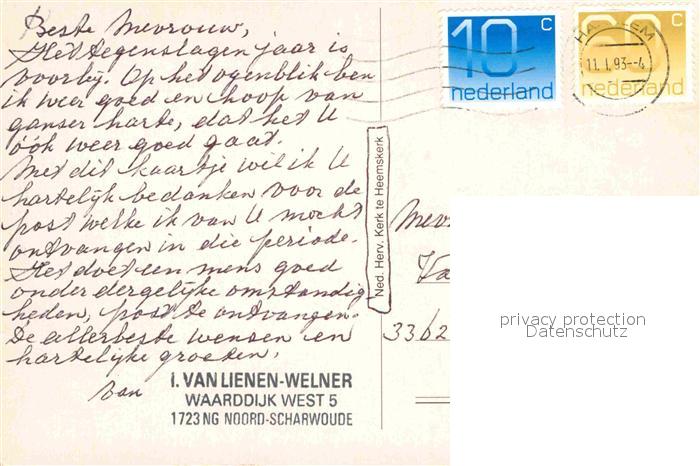 Beste Mevrouw,
Het tegenslagen jaar is
voorbij. Op het ogenblik ben
ik weer goed en hoop van
ganser harte, dat het U
óók weer goed gaat.
Met dit kaartje wil ik U
hartelijk bedanken voor de
post welke ik van U mocht
ontvangen in die periode.
Het doet een mens goed
onder dergelijke omstandig
heden, post te ontvangen.
De allerbeste wensen en
hartelijke groeten,
van
I. VAN LIENEN-WELNER
WAARDDIJK WEST 5
1723 NG NOORD-SCHARWOUDE
Ned. Herv. Kerk te Heemskerk
10 c
nederland
60 c
nederland
11.1.93-4
Mevr
Va
3362
privacy protection
Datenschutz